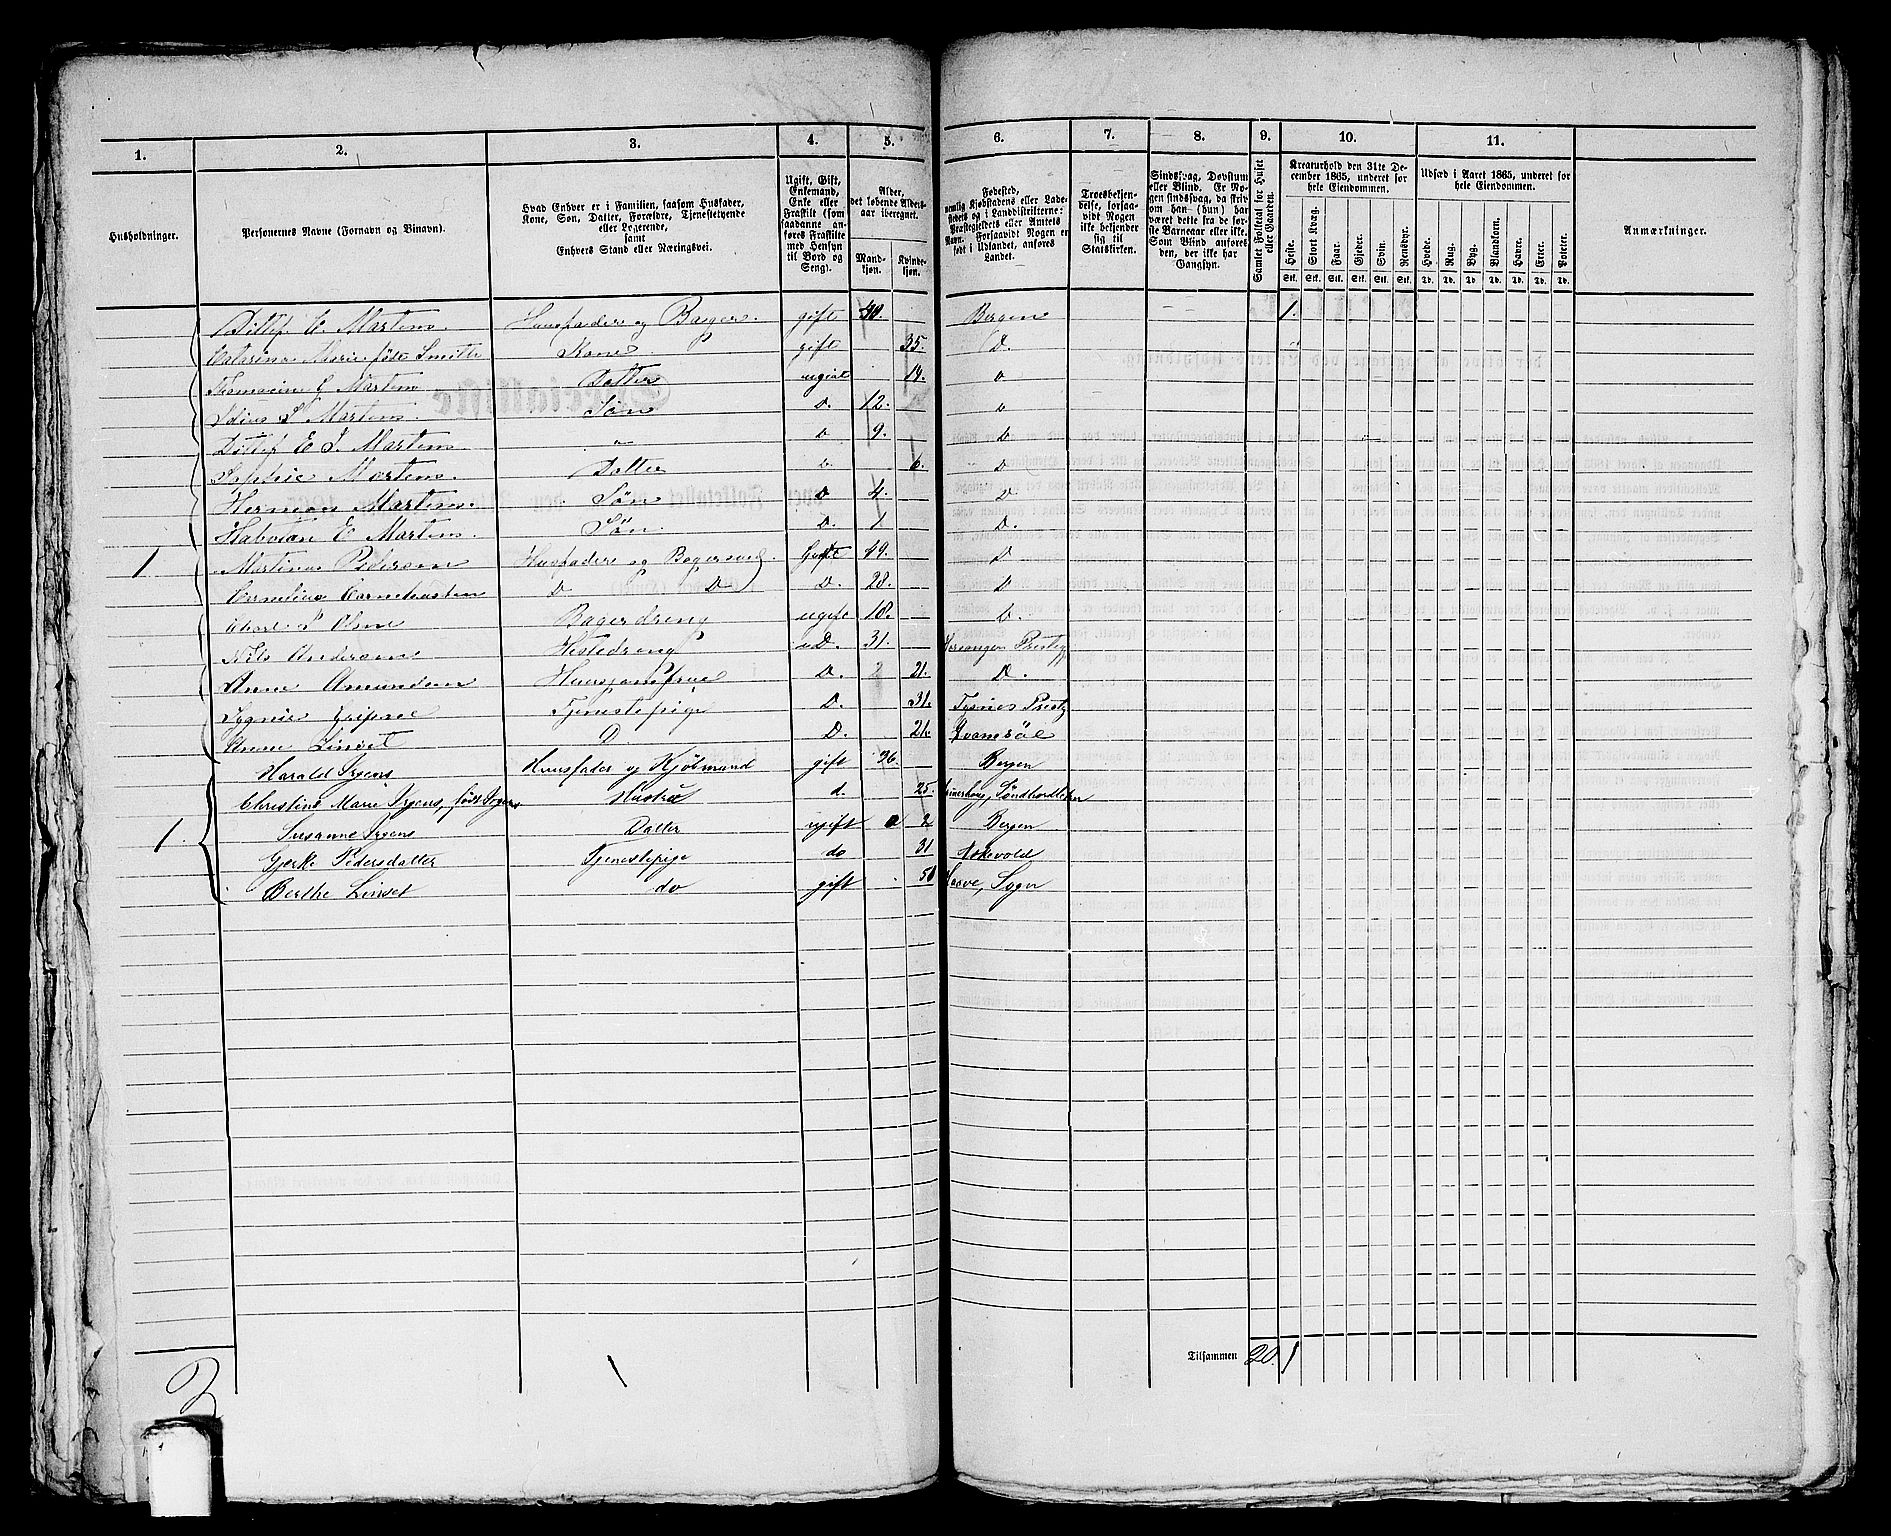 1. 2. 3. 4. 5. 6. 7. 8. 9. 10. 11.
Husholdninger.
Personernes Navne (Fornavn og Binavn).
Hvad Enhver er i Familien, saasom Husfader,
Kone, Søn, Datter, Forældre, Tjenestetyende
eller Logerende,
samt
Enhvers Stand eller Næringsvei.
Ugift, Gift,
Enkemand,
Enke eller
Fraskilt (som
saadanne an-
føres Fraskilte
med Hensyn
til Bord og
Seng).
Alder,
det løbende Alders-
aar iberegnet.
Mand-
kjøn.
Kvinde-
kjøn.
Fødested,
nemlig Kjøbstadens eller Lade-
stedets og i Landdistrikterne:
Præstegjeldets eller Amtets
Navn. Forsaavidt Nogen er
født i Udlandet, anføres
Landet.
Troesbekjen-
delse, forsaa-
vidt Nogen
ikke bekjender
sig til
Statskirken.
Sindssvag, Døvstum
eller Blind. Er No-
gen sindssvag, da skriv
om han (hun) har
været dette fra de før-
ste Barneaar eller ikke.
Som Blind anføres
den, der ikke har
Gangsyn.
Samlet Folketal for Huset
eller Gaarden.
Kreaturhold den 31te De-
cember 1865, underet for
hele Eiendommen.
Heste. Stort Kvæg. Faar. Gjeder. Svin. Rensdyr.
Stk. Stk. Stk. Stk. Stk. Stk.
Udsæd i Aaret 1865, underet for
hele Eiendommen.
Hvede. Rug. Byg. Blandkorn. Havre. Erter. Poteter.
Td. Td. Td. Td. Td. Td. Td.
Anmærkninger.
Ditlef E Martens Huusfader og Bager. gift 40. Bergen 1.
Catarina Marie født Smitt Kone gift 35. D.
G Martens Datter ugivt 14. D
S Martens Søn D. 12. D
Ditlef E J. Martens " D 9. D
Sophie Martens. Datter D 6. D
Herman Martens. Søn D 4. D
E Martens. Søn. D. 1 D.
1 Martinus Pedersen Huusfader og Bagersvend. Gift 49. D
Cornelius Corneliussen D D D. 28. D
P Olsen Bagerdreng ugift 18. D.
Nils Andersen Hestedreng D. 31. Præsteg
Anne Amundsen Huusjomfrue D. 21. D.
Tjenestepige D. 31. Tysnes Præstg
Anne Linset D. D. 21.
Harald Irgens Huusfader og Kjøbmand gift 36. Bergen
Christine Marie Irgens, født Hustru d. 25. Søndhordlehn
1. Susanne Irgens Datter ugift 2 Bergen
Gjerte Pedersdatter Tjenestepige do 31 Askevold
Berthe Linset do gift 50 Sogn
Tilsammen 20. 1
2